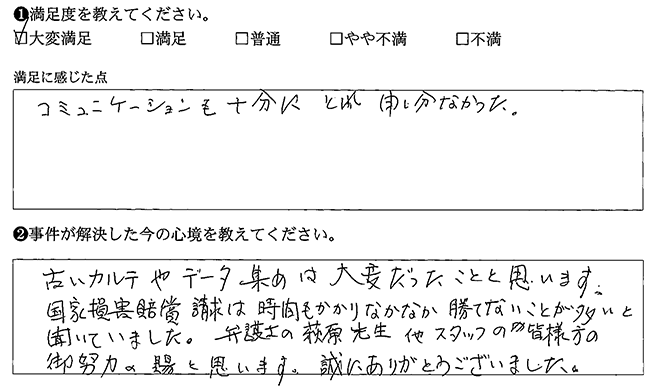 ❶満足度を教えてください。
☑大変満足 □満足 □普通 □やや不満 □不満
満足に感じた点
コミュニケーションも十分に とれ 申し分なかった。
❷事件が解決した今の心境を教えてください。
古いカルテ や データ 集め は 大変だった ことと 思います。
国家損害賠償 請求は 時間もかかりなかなか 勝てないことが多いと
聞いていました。 弁護士の 萩原 先生 他 スタッフの 皆様方の
御努力の 賜 と 思います。 誠にありがとうございました。